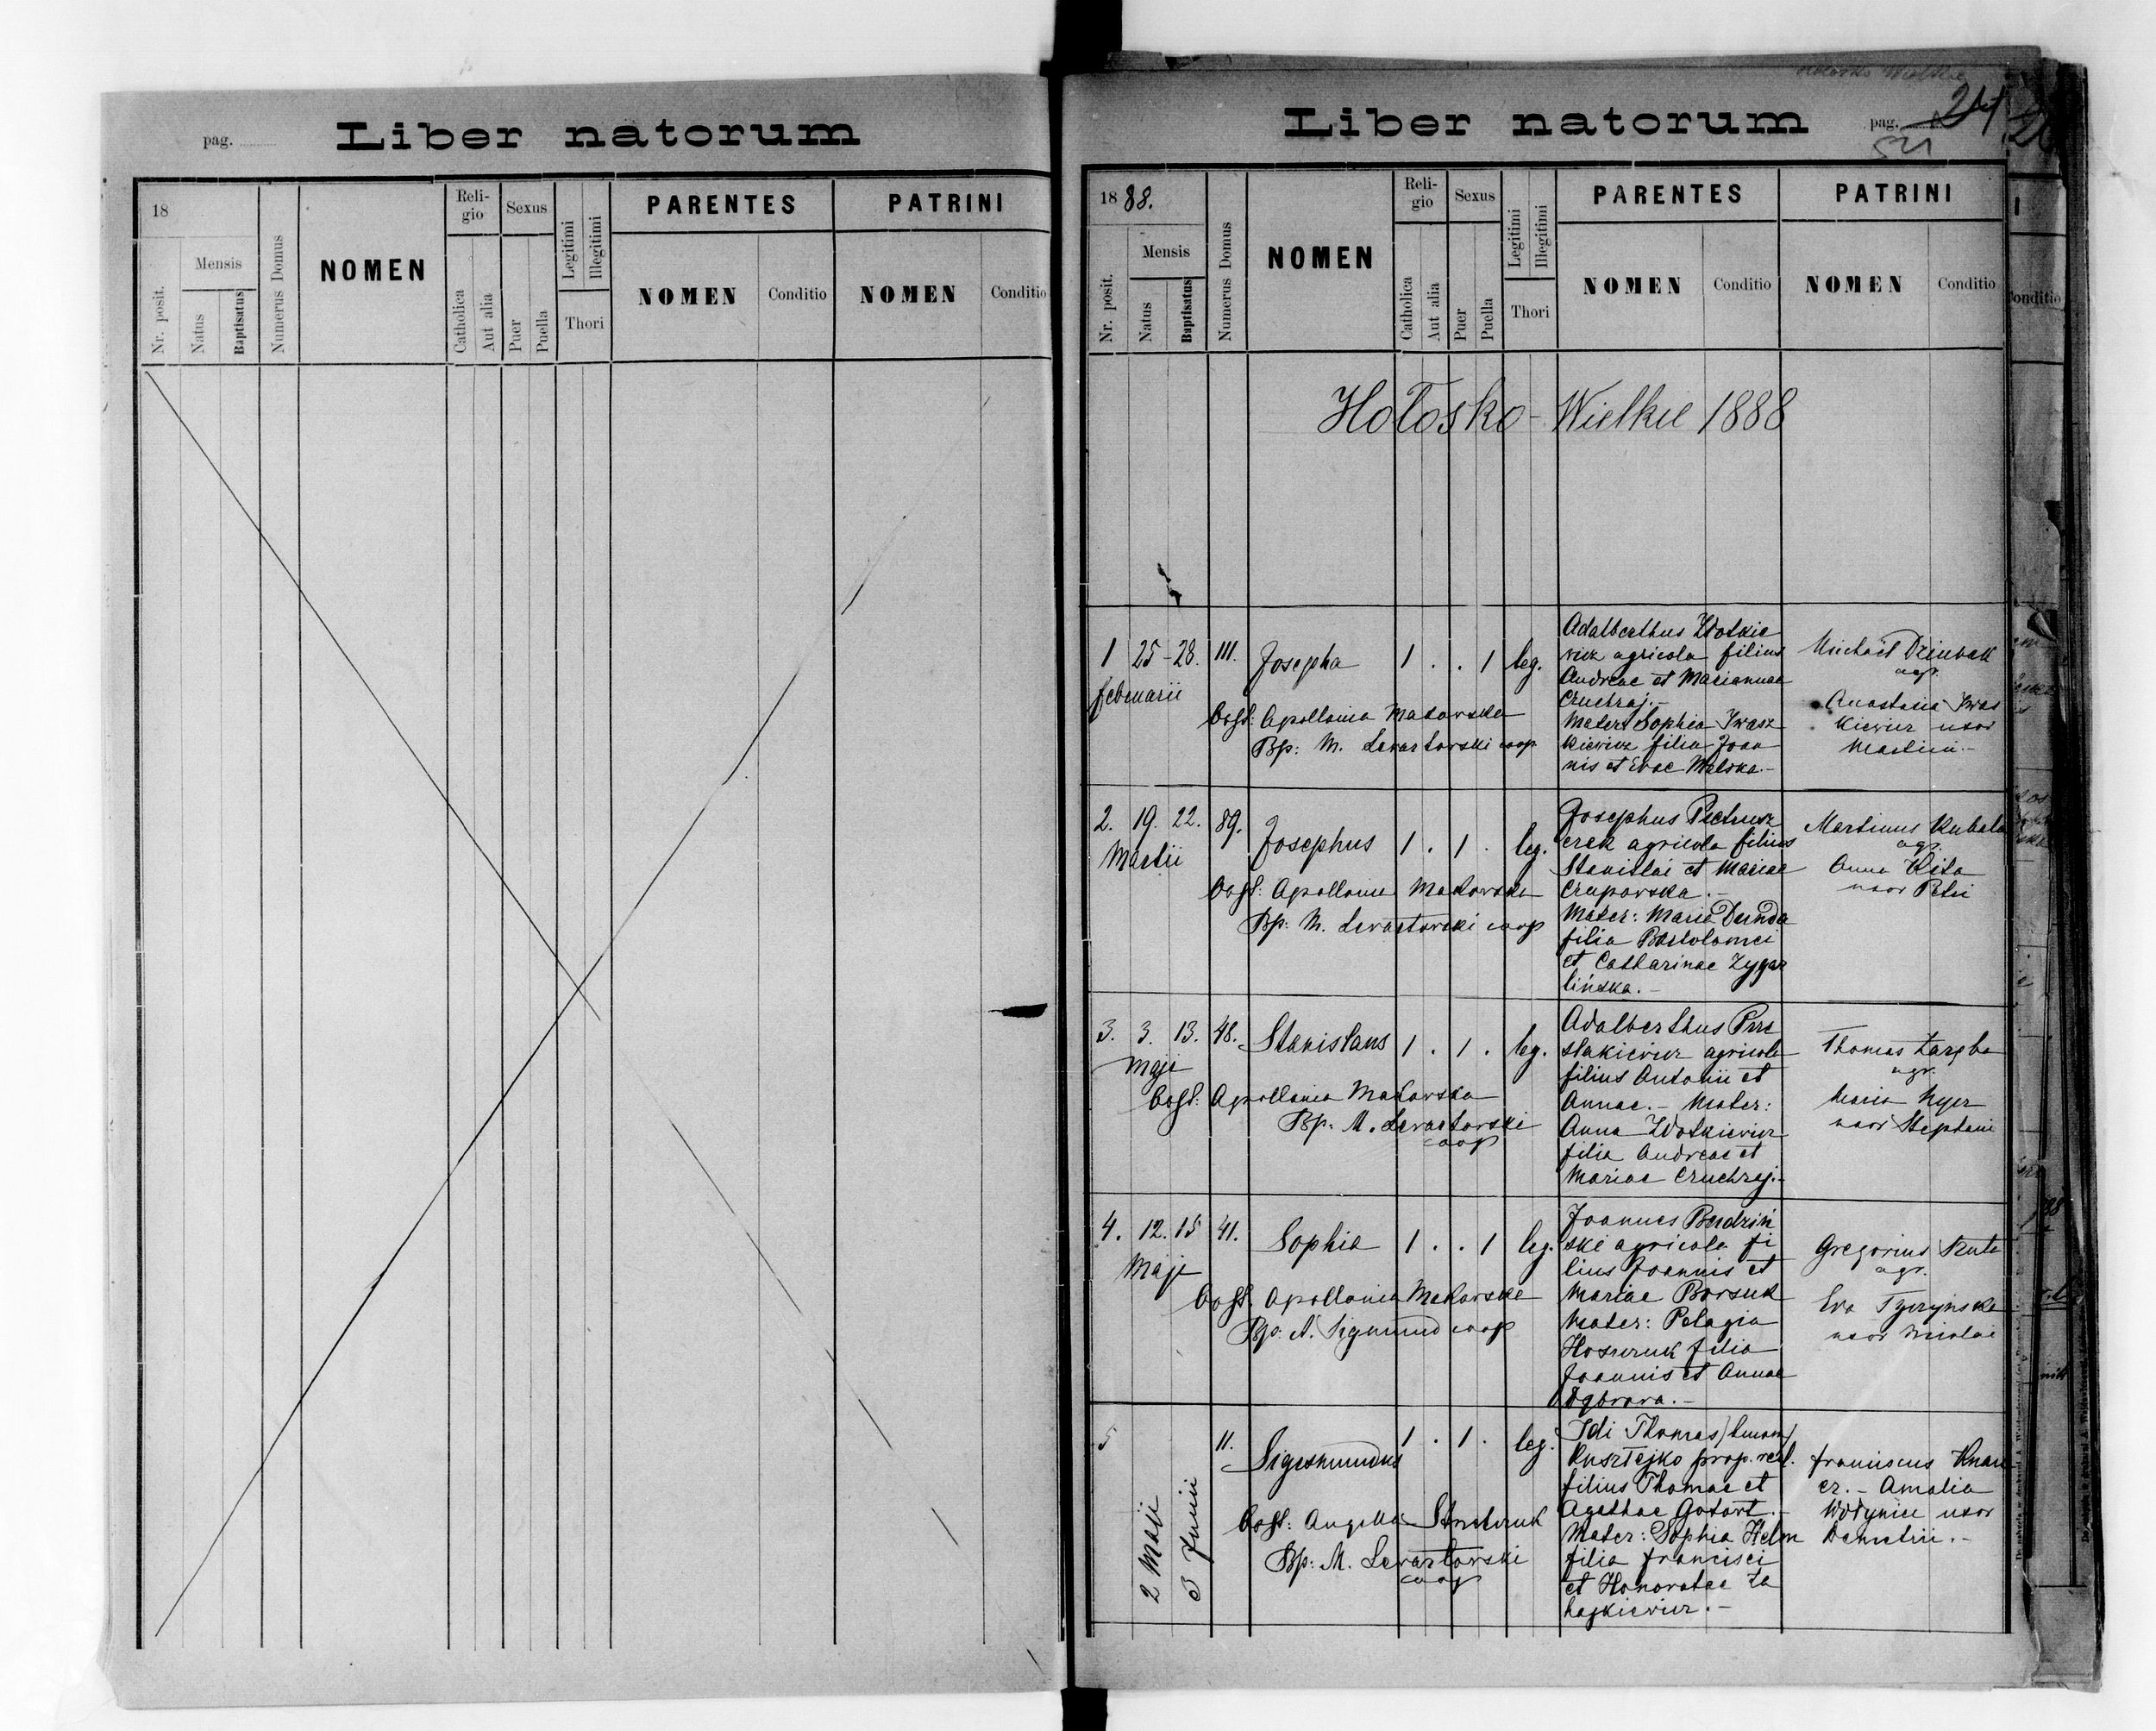 pag.
Liber natorum
18
Mensis
Nr. posit.
Natus
Baptisatus
Numerus Domus
NOMEN
Reli-
gio
Catholica
Aut alia
Sexus
Puer
Puella
Legitimi
Illegitimi
Thori
PARENTES
NOMEN
Conditio
PATRINI
NOMEN
Conditio
Liber natorum
pag.
1888.
Mensis
Nr. posit.
Natus
Baptisatus
Numerus Domus
NOMEN
Reli-
gio
Catholica
Aut alia
Sexus
Puer
Puella
Legitimi
Illegitimi
Thori
PARENTES
NOMEN
Conditio
PATRINI
NOMEN
Conditio
Hołosko-Wielkie 1888
1 25-28. 111. Josepha 1 . . 1 leg.
februarii
Obst: Apollonia Makovska
Bp: M. Levartovski coop
Adalberthus Wotkie
vicz agricola filius
Andreae et Mariannae
Czuchraj.-
Mater: Sophia Iwasz
kievicz filia Joan
nis et Evae Malska.-
Michael Dziubak
agr.
Anastasia Iwas
kievicz uxor
Martini.-
2. 19. 22. 89. Josephus 1 . 1 . leg.
Martii
Obst: Apollonia Makovska
Bp: M. Levartovski coop
Josephus Pietrusz
czak agricola filius
Stanislai et Mariae
Czuparska.-
Mater: Maria Dernda
filia Bartolomei
et Catharinae Zygar
lińska.-
Martinus Kubala
agr.
Anna Kita
uxor Petri
3. 3. 13. 48. Stanislaus 1 . 1 . leg.
Maji
Obst: Apollonia Makovska
Bp: M. Levartovski
coop
Adalberthus Prze
slakievicz agricola
filius Antonii et
Annae.- Mater:
Anna Wotkievicz
filia Andreae et
Mariae Czuchraj.-
Thomas Zaręba
agr.
Maria Nyer
uxor Stephani
4. 12. 15 41. Sophia 1 . . 1 leg.
Maji
Obst. Apollonia Makovska
Bp: A. Sigmund coop
Joannes Budziń
ski agricola fi
lius Joannis et
Mariae Borsuk
Mater: Pelagia
Joannis et Annae
Dąbrova.-
Gregorius
agr.
Eva
uxor Nicolai
5 11. Sigismundus 1 . 1 . leg.
2 Maii
3 Junii
Obst: Angella
Bp: M. Levartovski
coop
Idi Thomas
Kusztejko prop. real.
filius Thomae et
Agathae Gotart.-
Mater: Sophia Helm
filia Francisci
et Honoratae Za
hajkievicz.-
Franciscus Knau
er.- Amalia
Wotynice uxor
Demetrii.-
Conditio